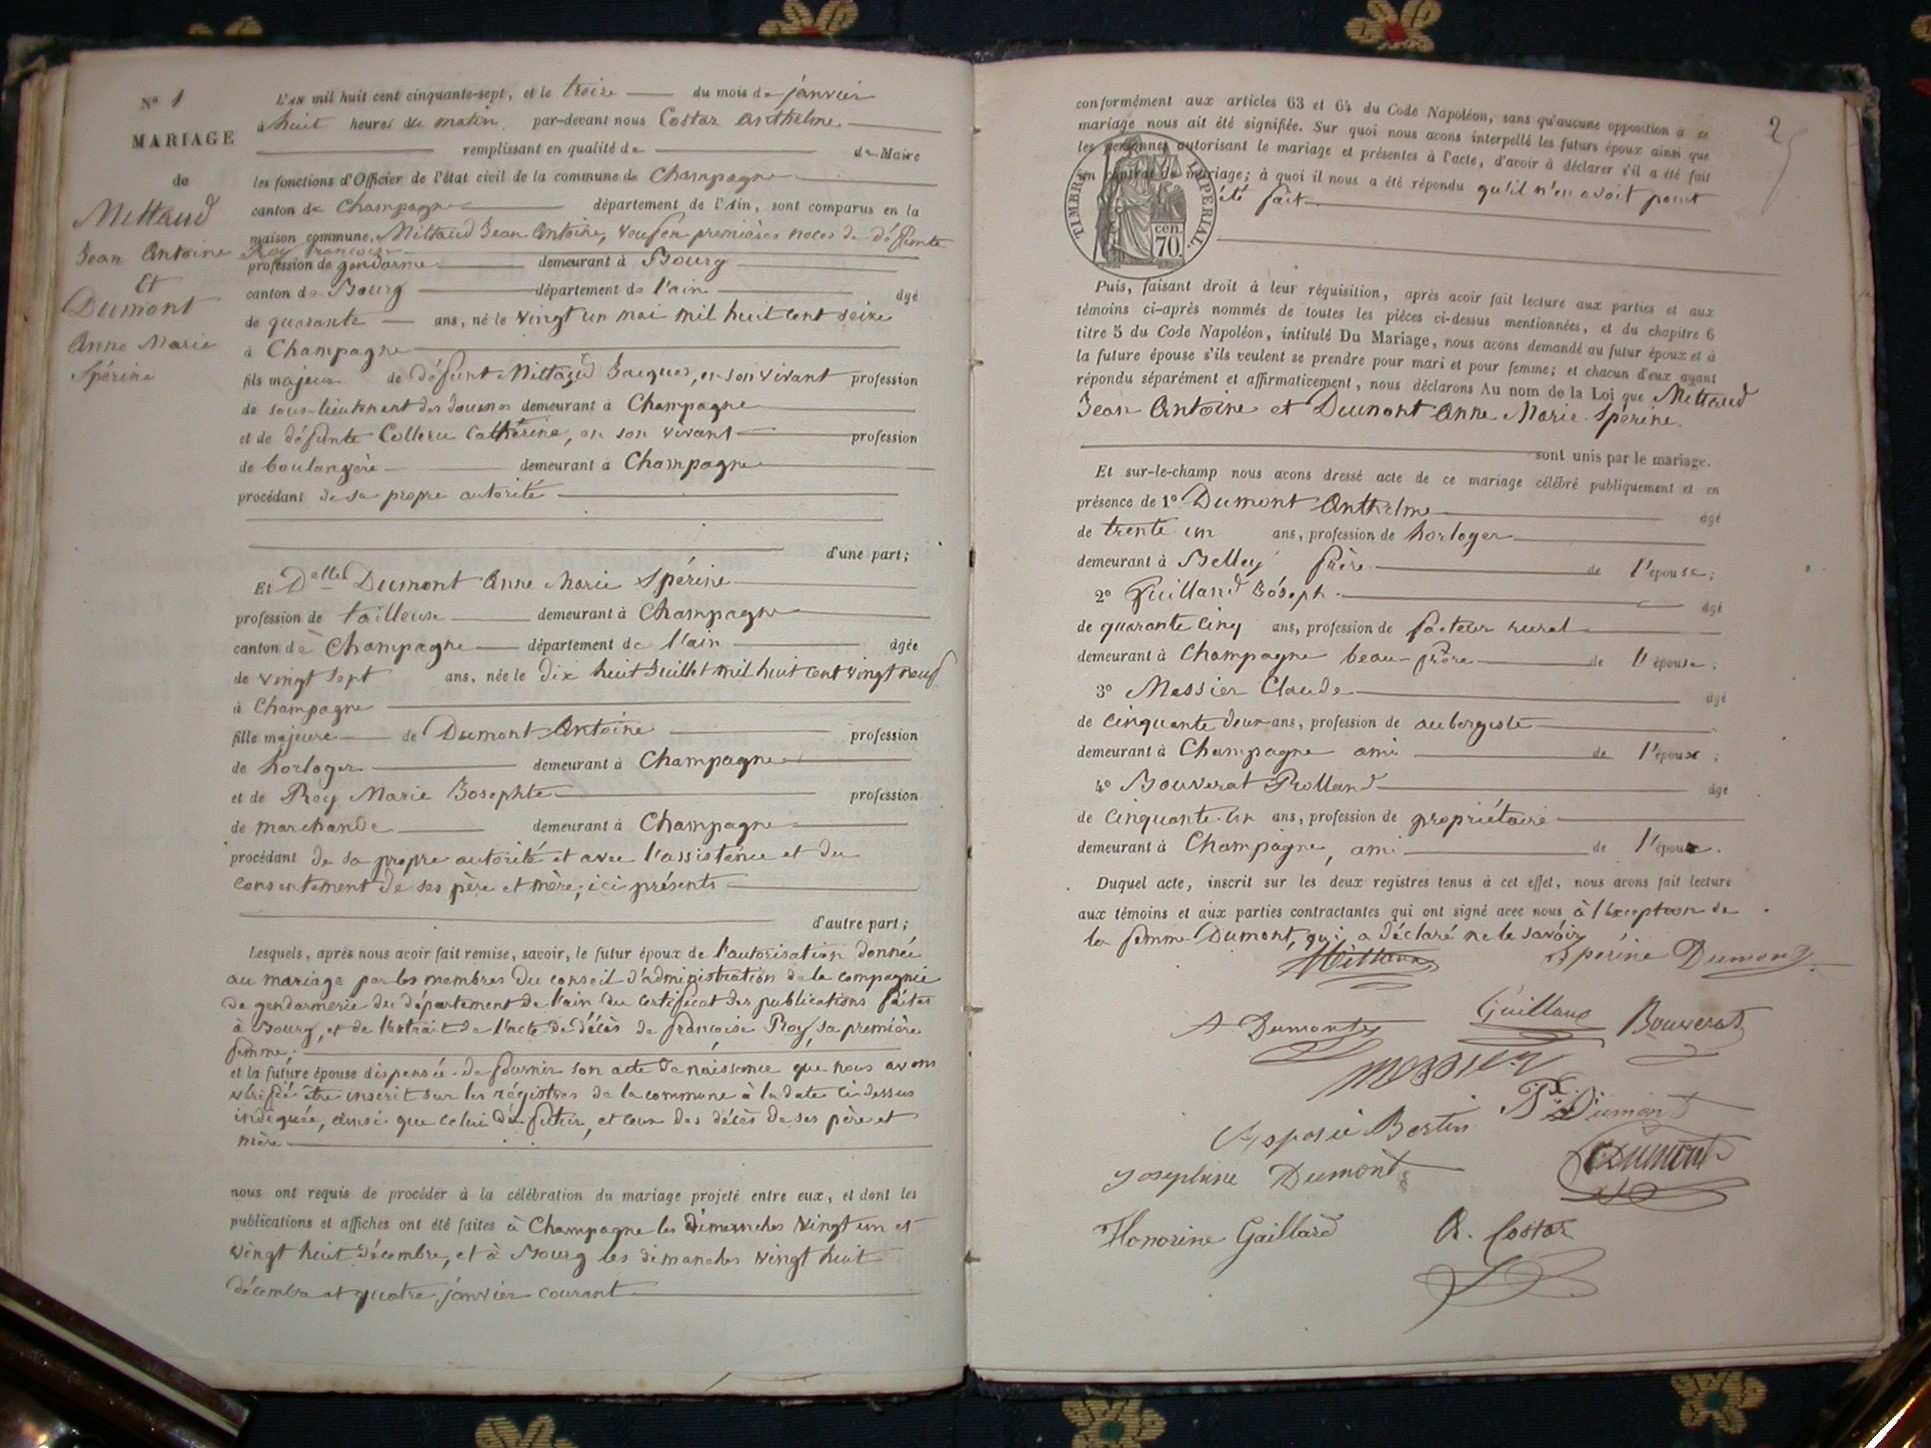 N° 1
MARIAGE
de
Mittaud
Jean Antoine
Et
Dumont
Anne Marie
Spérine
L'AN mil huit cent cinquante-sept, et le treize du mois de janvier
à huit heures du matin, par-devant nous Costaz Anthelme
remplissant en qualité de de Maire
les fonctions d'Officier de l'état civil de la commune de Champagne
canton de Champagne département de l'Ain, sont comparus en la
maison commune, Mittaud Jean Antoine, veuf en premières noces de défunte
Roy Françoise
profession de gendarme demeurant à Bourg
canton de Bourg département de l'ain âgé
de quarante ans, né le vingt un mai mil huit cent seize
à Champagne
fils majeur de défunt Mittaud Jacques, en son vivant profession
de sous-lieutenant des douanes demeurant à Champagne
et de défunte Catherine, en son vivant profession
de boulangère demeurant à Champagne
procédant de sa propre autorité
d'une part;
Et Delle Dumont Anne Marie Spérine
profession de tailleuse demeurant à Champagne
canton de Champagne département de l'ain âgée
de vingt sept ans, née le dix huit Juillet mil huit cent vingt neuf
à Champagne
fille majeure de Dumont Antoine profession
de horloger demeurant à Champagne
et de Roy Marie Josephte profession
de marchande demeurant à Champagne
procédant de sa propre autorité et avec l'assistance et du
consentement de ses père et mère, ici présents
d'autre part;
Lesquels, après nous avoir fait remise, savoir, le futur époux de l'autorisation donnée
au mariage par les membres du conseil d'administration de la compagnie
de gendarmerie du département de l'ain du certificat des publications faites
à Bourg, et de l'extrait de l'acte de décès de françoise Roy, sa première
femme;
et la future épouse dispensée de fournir son acte de naissance que nous avons
vérifié être inscrit sur les régistres de la commune à la date ci-dessus
indiquée, ainsi que celui du futur, et ceux des décès de ses père et
mère
nous ont requis de procéder à la célébration du mariage projeté entre eux, et dont les
publications et affiches ont été faites à Champagne les dimanches vingt un et
vingt huit décembre, et à Bourg les dimanches vingt huit
décembre et quatre janvier courant
2
conformément aux articles 63 et 64 du Code Napoléon, sans qu'aucune opposition à ce
mariage nous ait été signifiée. Sur quoi nous avons interpellé les futurs époux ainsi que
les personnes autorisant le mariage et présentes à l'acte, d'avoir à déclarer s'il a été fait
un contrat de mariage; à quoi il nous a été répondu qu'il n'en avait point
été fait
TIMBRE IMPÉRIAL.
cen.
70.
Puis, faisant droit à leur réquisition, après avoir fait lecture aux parties et aux
témoins ci-après nommés de toutes les pièces ci-dessus mentionnées, et du chapitre 6
titre 5 du Code Napoléon, intitulé Du Mariage, nous avons demandé au futur époux et à
la future épouse s'ils veulent se prendre pour mari et pour femme; et chacun d'eux ayant
répondu séparément et affirmativement, nous déclarons Au nom de la Loi que Mittaud
Jean Antoine et Dumont Anne Marie Spérine.
sont unis par le mariage.
Et sur-le-champ nous avons dressé acte de ce mariage célébré publiquement et en
présence de 1° Dumont Anthelme âgé
de trente un ans, profession de horloger
demeurant à Belley frère de l'épouse;
2° Guilland Joseph âgé
de quarante cinq ans, profession de facteur rural
demeurant à Champagne beau-frère de l'épouse;
3° Messier Claude âgé
de cinquante deux ans, profession de aubergiste
demeurant à Champagne ami de l'époux;
4° Bouverat Rolland âgé
de cinquante un ans, profession de propriétaire
demeurant à Champagne, ami de l'époux.
Duquel acte, inscrit sur les deux registres tenus à cet effet, nous avons fait lecture
aux témoins et aux parties contractantes qui ont signé avec nous, à l'éxception de
la femme Dumont, qui a déclaré ne le savoir
Mittaud Spérine Dumont
A Dumont Guilland Bouverat
Messier
Bertin Dumont
Josephine Dumont Dumont
Honorine Gaillard A. Costaz